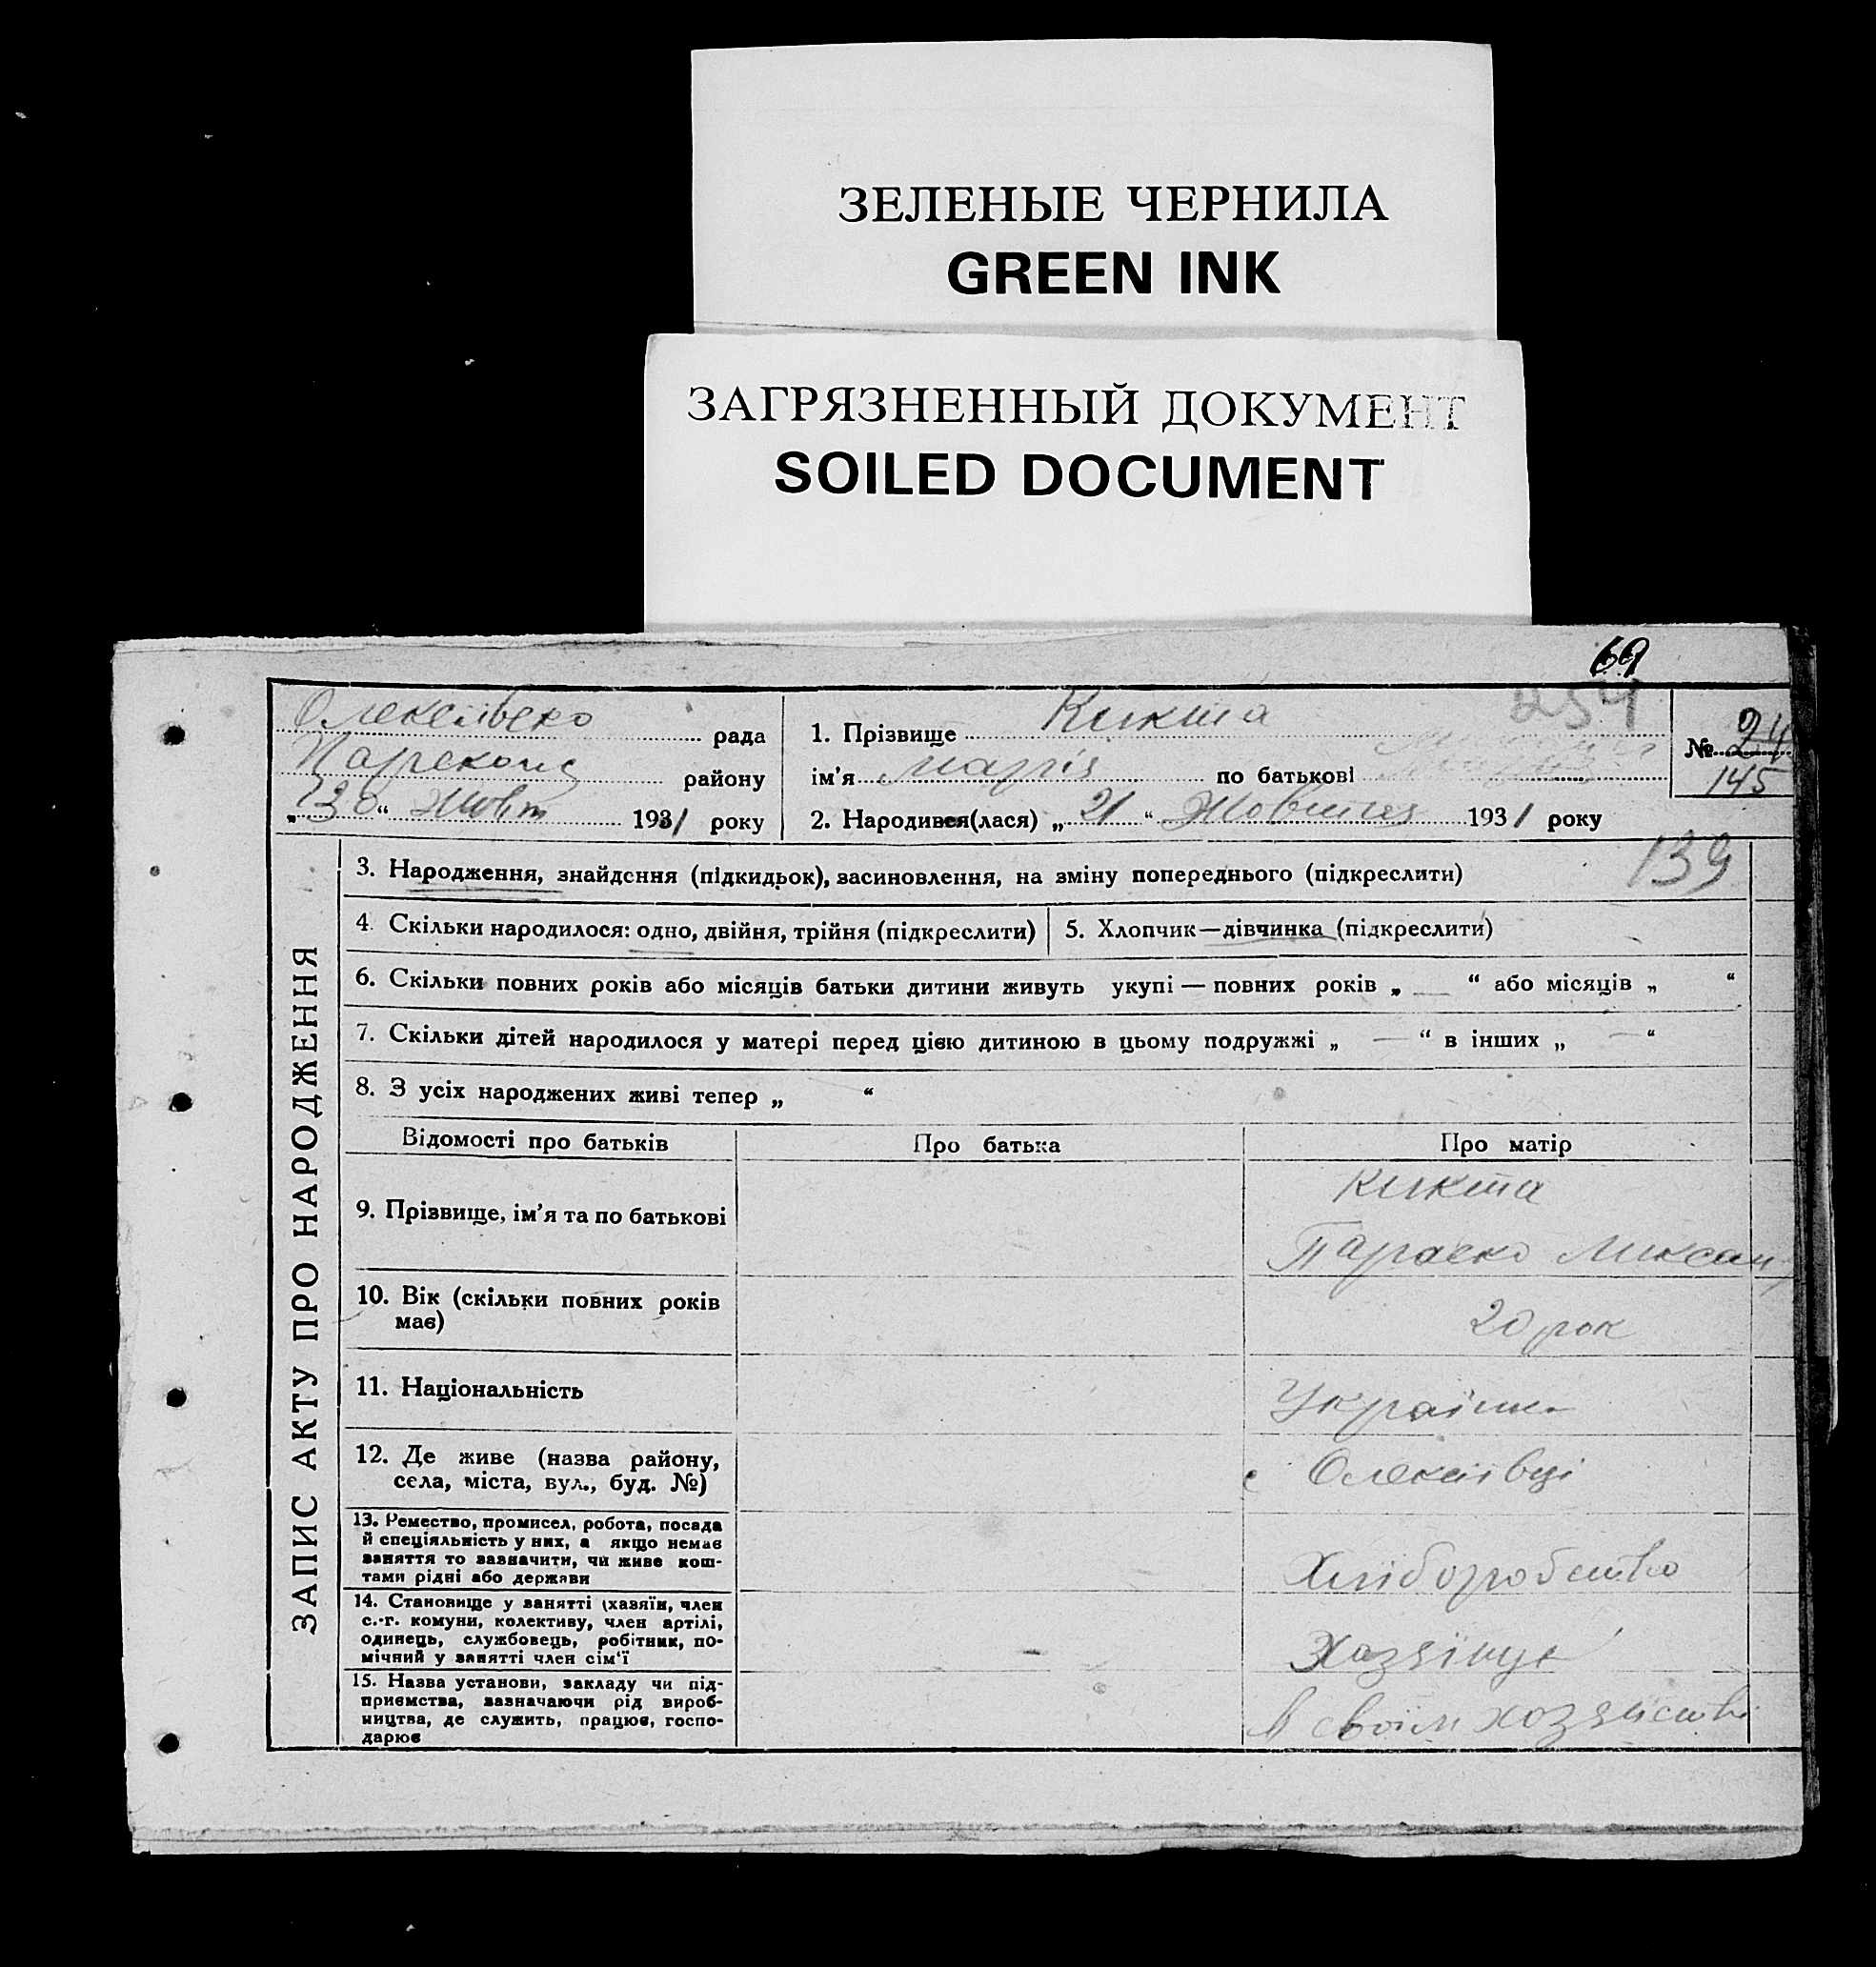 ЗЕЛЕНЫЕ ЧЕРНИЛА
GREEN INK
ЗАГРЯЗНЕННЫЙ ДОКУМЕНТ
SOILED DOCUMENT
69
254
рада
району
„30“ Жовт 1931 року
1. Прізвище Кикта
ім'я Марія по батькові
2. Народився(лася) „21“ Жовтня 1931 року
№ 24
145
139
ЗАПИС АКТУ ПРО НАРОДЖЕННЯ
3. Народження, знайдення (підкидьок), засиновлення, на зміну попереднього (підкреслити)
4. Скільки народилося: одно, двійня, трійня (підкреслити)
5. Хлопчик—дівчинка (підкреслити)
6. Скільки повних років або місяців батьки дитини живуть укупі — повних років „ — “ або місяців „ “
7. Скільки дітей народилося у матері перед цією дитиною в цьому подружжі „ — “ в інших „ — “
8. З усіх народжених живі тепер „ “
Відомості про батьків
Про батька
Про матір
9. Прізвище, ім'я та по батькові
Кикта
Параска
10. Вік (скільки повних років
має)
20 рок
11. Національність
Українка
12. Де живе (назва району,
села, міста, вул., буд. №)
с Олексіївці
13. Ремество, промисел, робота, посада
й спеціяльність у них, а якщо немає
заняття то зазначити, чи живе кош-
тами рідні або держави
Хліборобство
14. Становище у занятті (хазяїн, член
с.-г. комуни, колективу, член артілі,
одинець, службовець, робітник, по-
мічний у занятті член сім'ї
Хазяйнує
15. Назва установи, закладу чи під-
приємства, зазначаючи рід вироб-
ництва, де служить, працює, госпо-
дарює
В своїм хозяйстві